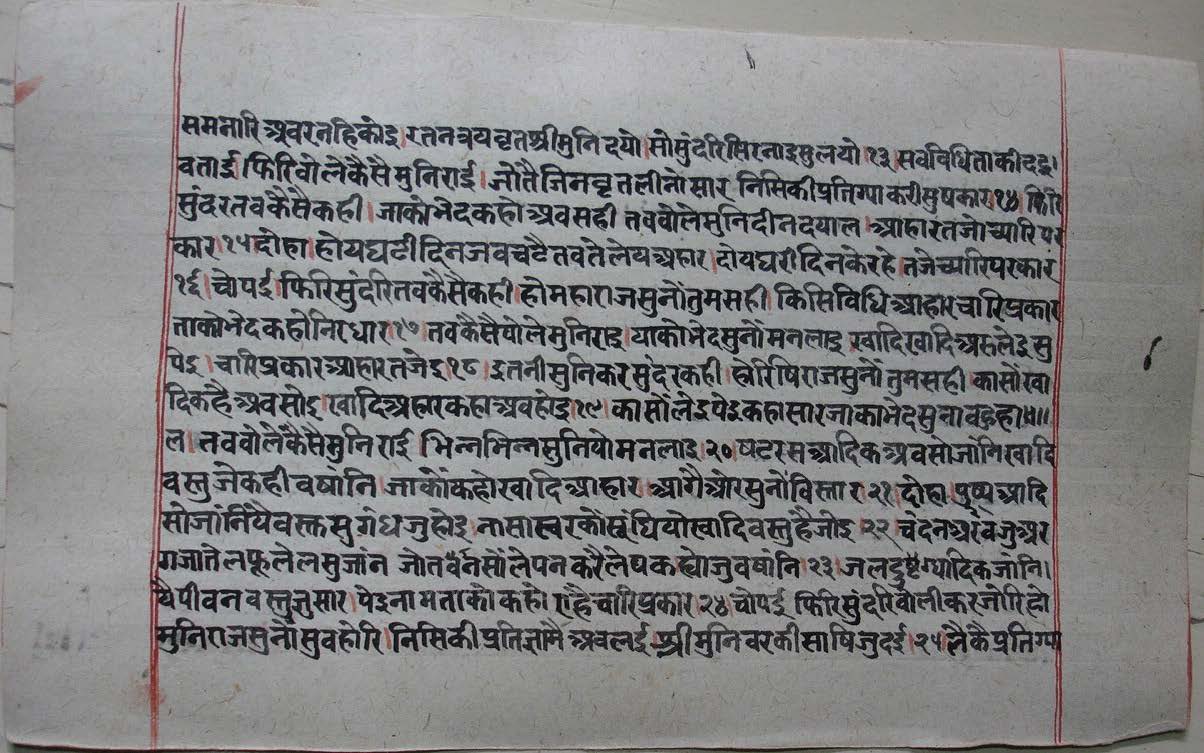 समनारिअवरनहिकोइ।रतनत्रयवृतश्रीमुनिदयो।सोसुंदरिसिरनाइसुलयो।१३।सवविधिताकीदइ।
वताई।फिरिवोलेकैसैमुनिराई।जोतैजिनवृतलीनोसार।निसिकीप्रतिग्याकरीसुषकार।१४।फिरि
सुंदरतवकैसैकही।जाकोभेदकहोअवसही।तववोलेमुनिदीनदयाल।आहारतजोच्यारिपर
कार।१५।दोहा।होयघटीदिनजवचटैतवतेलेयअहार।दोयघरीदिनकेरहेतजेच्यारिपरकार
१६।चोपई।फिरिसुंदरितवकैसैकही।होमहाराजसुनोंतुमसही।किसिविधिआहारचारिप्रकार
ताकोभेदकहोनिरधार।१७।तवकैसैवोलेमुनिराइ।याकोभेदसुनोंमनलाइ।खादिस्वादिअरुलेइसु
पेइ।चारिप्रकारआहारतजेइ।१८।इतनीसुनिकरसुंदरकही।होरिषिराजसुनोंतुमसही।कासोंखा
दिकहैअवसोइ।खादिअहारकहाअवहोइ।१९।कासोंलेइपेइकहासारजाकाभेद
ल।तववोलेकैसैमुनिराई।भिन्नभिन्नसुनियोमनलाइ।२०।षटरसआदिकअवसोजांनिखादि
वस्तुजेकहीवषांनि।जाकोंकहोखादिआहार।आगैओरसुनोंविस्तार।२१।दोहा।पुष्पआदि
सोजांनियैवस्तसुगंधजुहोइ।नासास्वरकोंसूंघियोस्वादिवस्तुहैजोइ।२२।चंदनअरवजुअर
गजातेलफूलेलसुजांन।जोतनसोंलेपनकरैलेषकह्योजुवषांनि।२३।जलदुग्धादिकजांनि।
यैपीवनवस्तुजुसार।पेइनामताकोकहोएहैचारिप्रकार।२४।चोपई।फिरिसुंदरिवोलीकरजोरिहो
मुनिराजसुनोंसुवहोरि।निसिकीप्रतिज्ञामैअवलई।श्रीमुनिवरकीसाषिजुदई।२५।लैकैप्रतिग्या